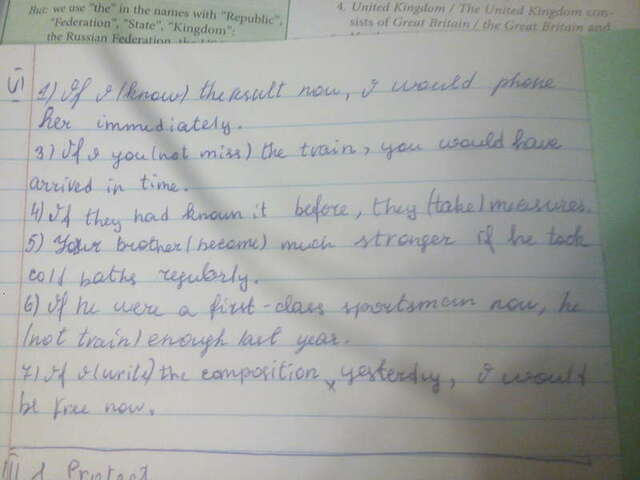 But: we use "the" in the names with "Republic",
"Federation", "State", "Kingdom":
the Russian Federation, the
4. United Kingdom / The United Kingdom con-
sists of Great Britain / the Great Britain and
VI
1) If I (know) the result now, I would phone
her immediately.
3) If you (not miss) the train, you would have
arrived in time.
4) If they had known it before, they (take) measures.
5) Your brother (become) much stronger if he took
cold baths regularly.
6) If he were a first-class sportsman now, he
(not train) enough last year.
7) If I (write) the composition yesterday, I would
be free now.